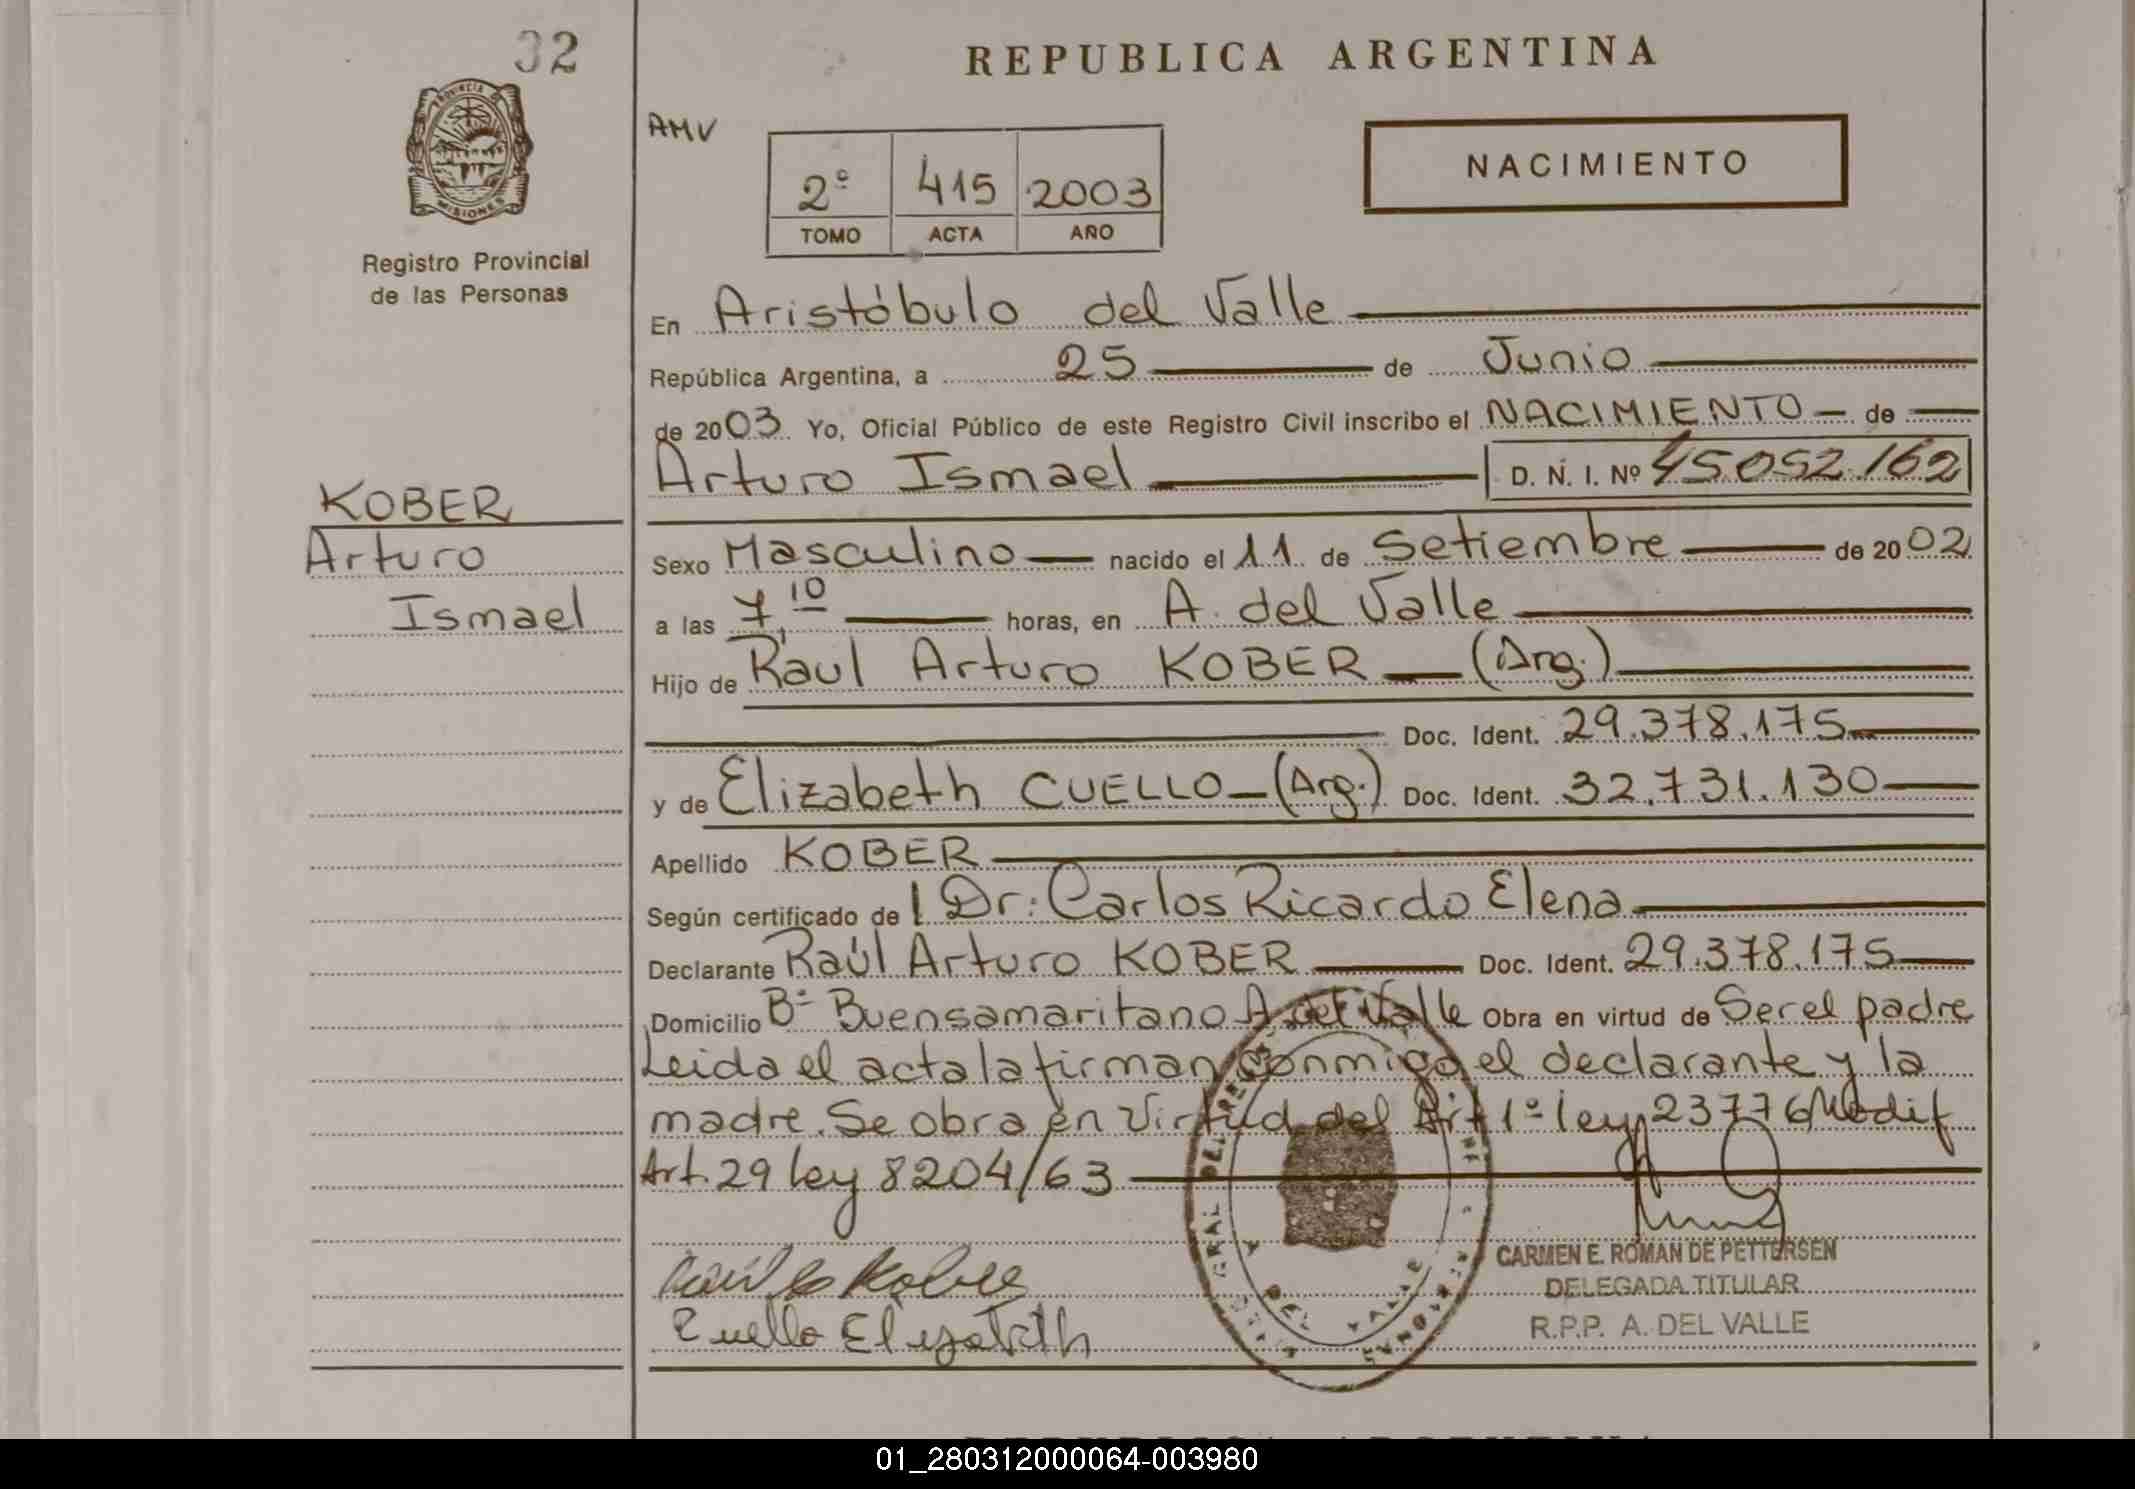 32
REPUBLICA ARGENTINA
PROVINCIA DE
MISIONES
Registro Provincial
de las Personas
AMV
2º 415 2003
TOMO ACTA AÑO
NACIMIENTO
En Aristóbulo del Valle
República Argentina, a 25 de Junio
de 2003 Yo, Oficial Público de este Registro Civil inscribo el NACIMIENTO de
Arturo Ismael D. N. I. Nº 45.052.162
KOBER
Arturo
Ismael
Sexo Masculino nacido el 11 de Setiembre de 2002
a las 7,10 horas, en A. del Valle
Hijo de Raul Arturo KOBER (Arg.)
Doc. Ident. 29.378.175
y de Elizabeth CUELLO (Arg.) Doc. Ident. 32.731.130
Apellido KOBER
Según certificado de Dr: Carlos Ricardo Elena
Declarante Raúl Arturo KOBER Doc. Ident. 29.378.175
Domicilio Bº Buensamaritano A. del Valle Obra en virtud de Ser el padre
Leida el acta la firman conmigo el declarante y la
madre. Se obra en virtud del Art 1º ley 23776 Modif
Art. 29 ley 8204/63
Kober
Cuello Elizabeth
DEL VALLE
CARMEN E. ROMAN DE PETTERSEN
DELEGADA TITULAR
R.P.P. A. DEL VALLE
01_280312000064-003980